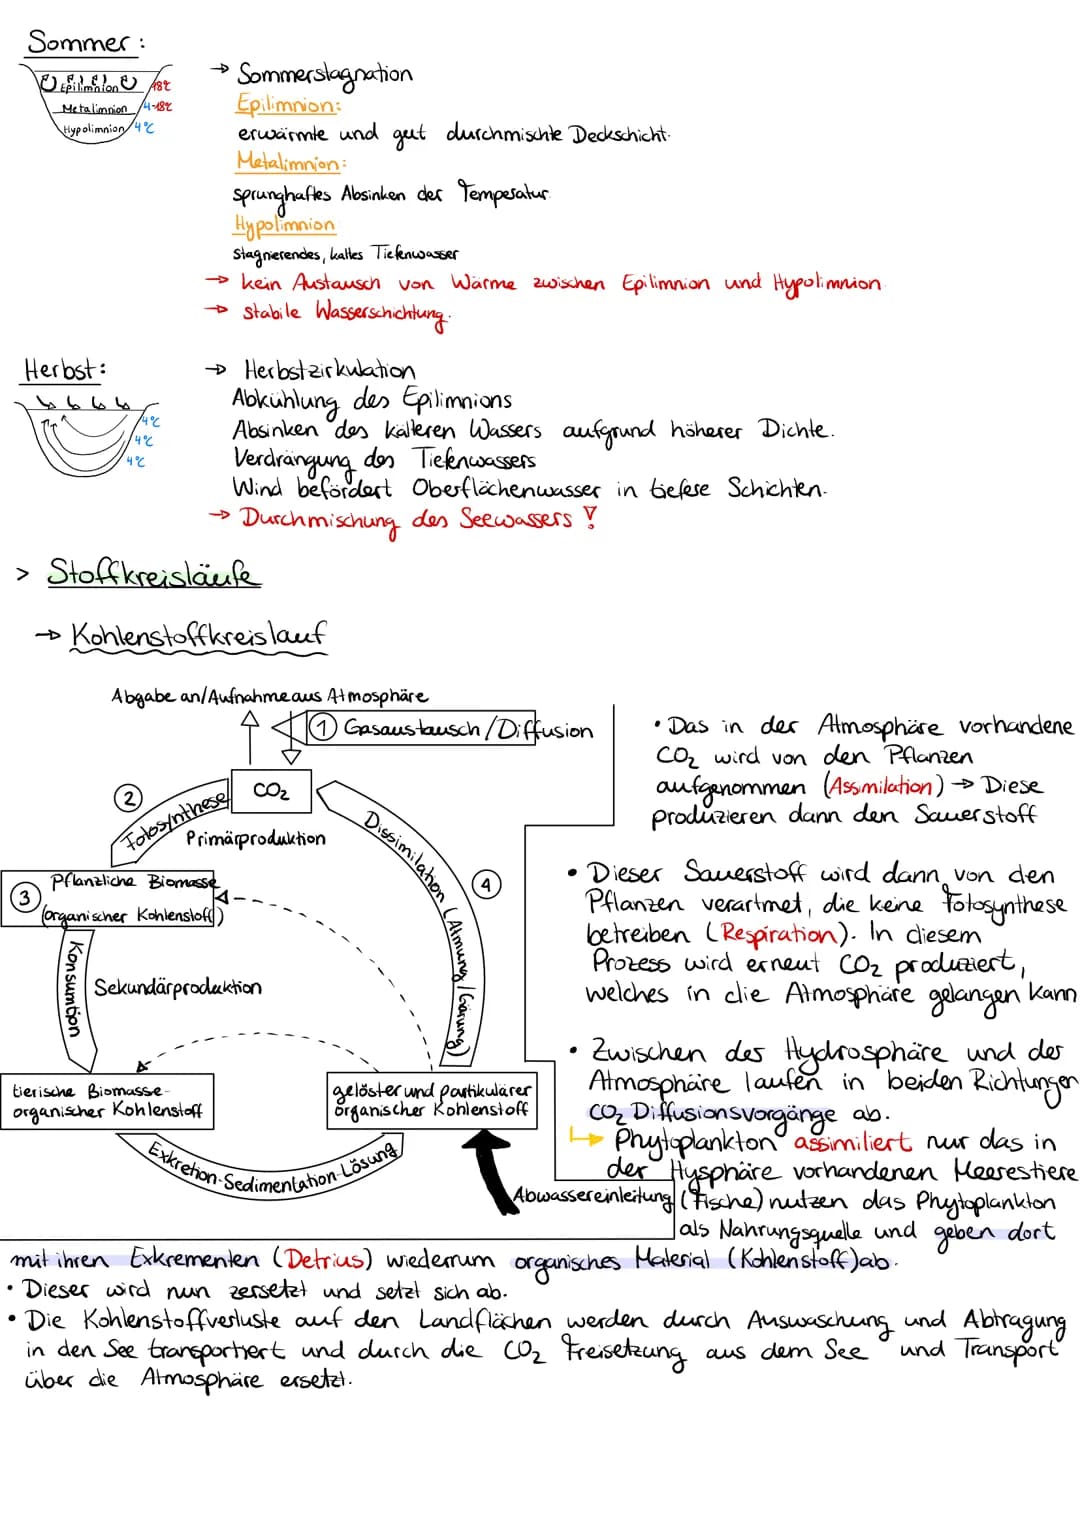 Sommer:
Epilimnion 18°C
Metalimnion 4-18°C
Hypolimnion 4°C
→ Sommerstagnation
Epilimnion:
erwärmte und gut durchmischte Deckschicht.
Metalimnion:
sprunghaftes Absinken der Temperatur.
Hypolimnion
stagnierendes, kaltes Tiefenwasser
→ kein Austausch von Wärme zwischen Epilimnion und Hypolimnion.
→ stabile Wasserschichtung.
Herbst:
4°C
4°C
4°C
→ Herbstzirkulation
Abkühlung des Epilimnions
Absinken des kälteren Wassers aufgrund höherer Dichte.
Verdrängung des Tiefenwassers
Wind befördert Oberflächenwasser in tiefere Schichten.
→ Durchmischung des Seewassers !
> Stoffkreisläufe
→ Kohlenstoffkreislauf
Abgabe an/Aufnahme aus Atmosphäre
① Gasaustausch/Diffusion
CO₂
②
Fotosynthese
Primärproduktion
③
Pflanzliche Biomasse
(organischer Kohlenstoff)
Konsumtion
Sekundärproduktion
Dissimilation (Atmung/Gärung)
④
tierische Biomasse-
organischer Kohlenstoff
gelöster und partikulärer
organischer Kohlenstoff
Exkretion-Sedimentation-Lösung
Abwassereinleitung
• Das in der Atmosphäre vorhandene
CO₂ wird von den Pflanzen
aufgenommen (Assimilation) → Diese
produzieren dann den Sauerstoff
• Dieser Sauerstoff wird dann von den
Pflanzen verartmet, die keine Fotosynthese
betreiben (Respiration). In diesem
Prozess wird erneut CO₂ produziert,
welches in die Atmosphäre gelangen kann
• Zwischen der Hydrosphäre und der
Atmosphäre laufen in beiden Richtungen
CO₂ Diffusionsvorgänge ab.
↳ Phytoplankton assimiliert nur das in
der Hysphäre vorhandenen Meerestiere
(Fische) nutzen das Phytoplankton
als Nahrungsquelle und geben dort
mit ihren Exkrementen (Detrius) wiederrum organisches Material (Kohlenstoff) ab.
• Dieser wird nun zersetzt und setzt sich ab.
• Die Kohlenstoffverluste auf den Landflächen werden durch Auswaschung und Abtragung
in den See transportiert und durch die CO₂ Freisetzung aus dem See und Transport
über die Atmosphäre ersetzt.